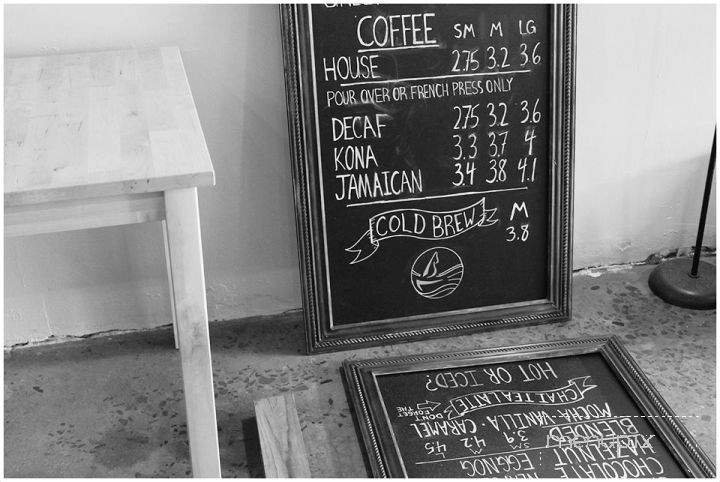 COFFEE SM M LG
HOUSE 2.75 3.2 3.6
POUR OVER OR FRENCH PRESS ONLY
DECAF 2.75 3.2 3.6
KONA 3.3 3.7 4
JAMAICAN 3.4 3.8 4.1
COLD BREW M
3.8
CHOCOLATE
HAZELNUT EGGNOG
BLENDED 3.9 4.2 4.5
MOCHA · VANILLA · CARAMEL
DON'T
FORGET
THE
CHAI TEA LATTE
HOT OR ICED?